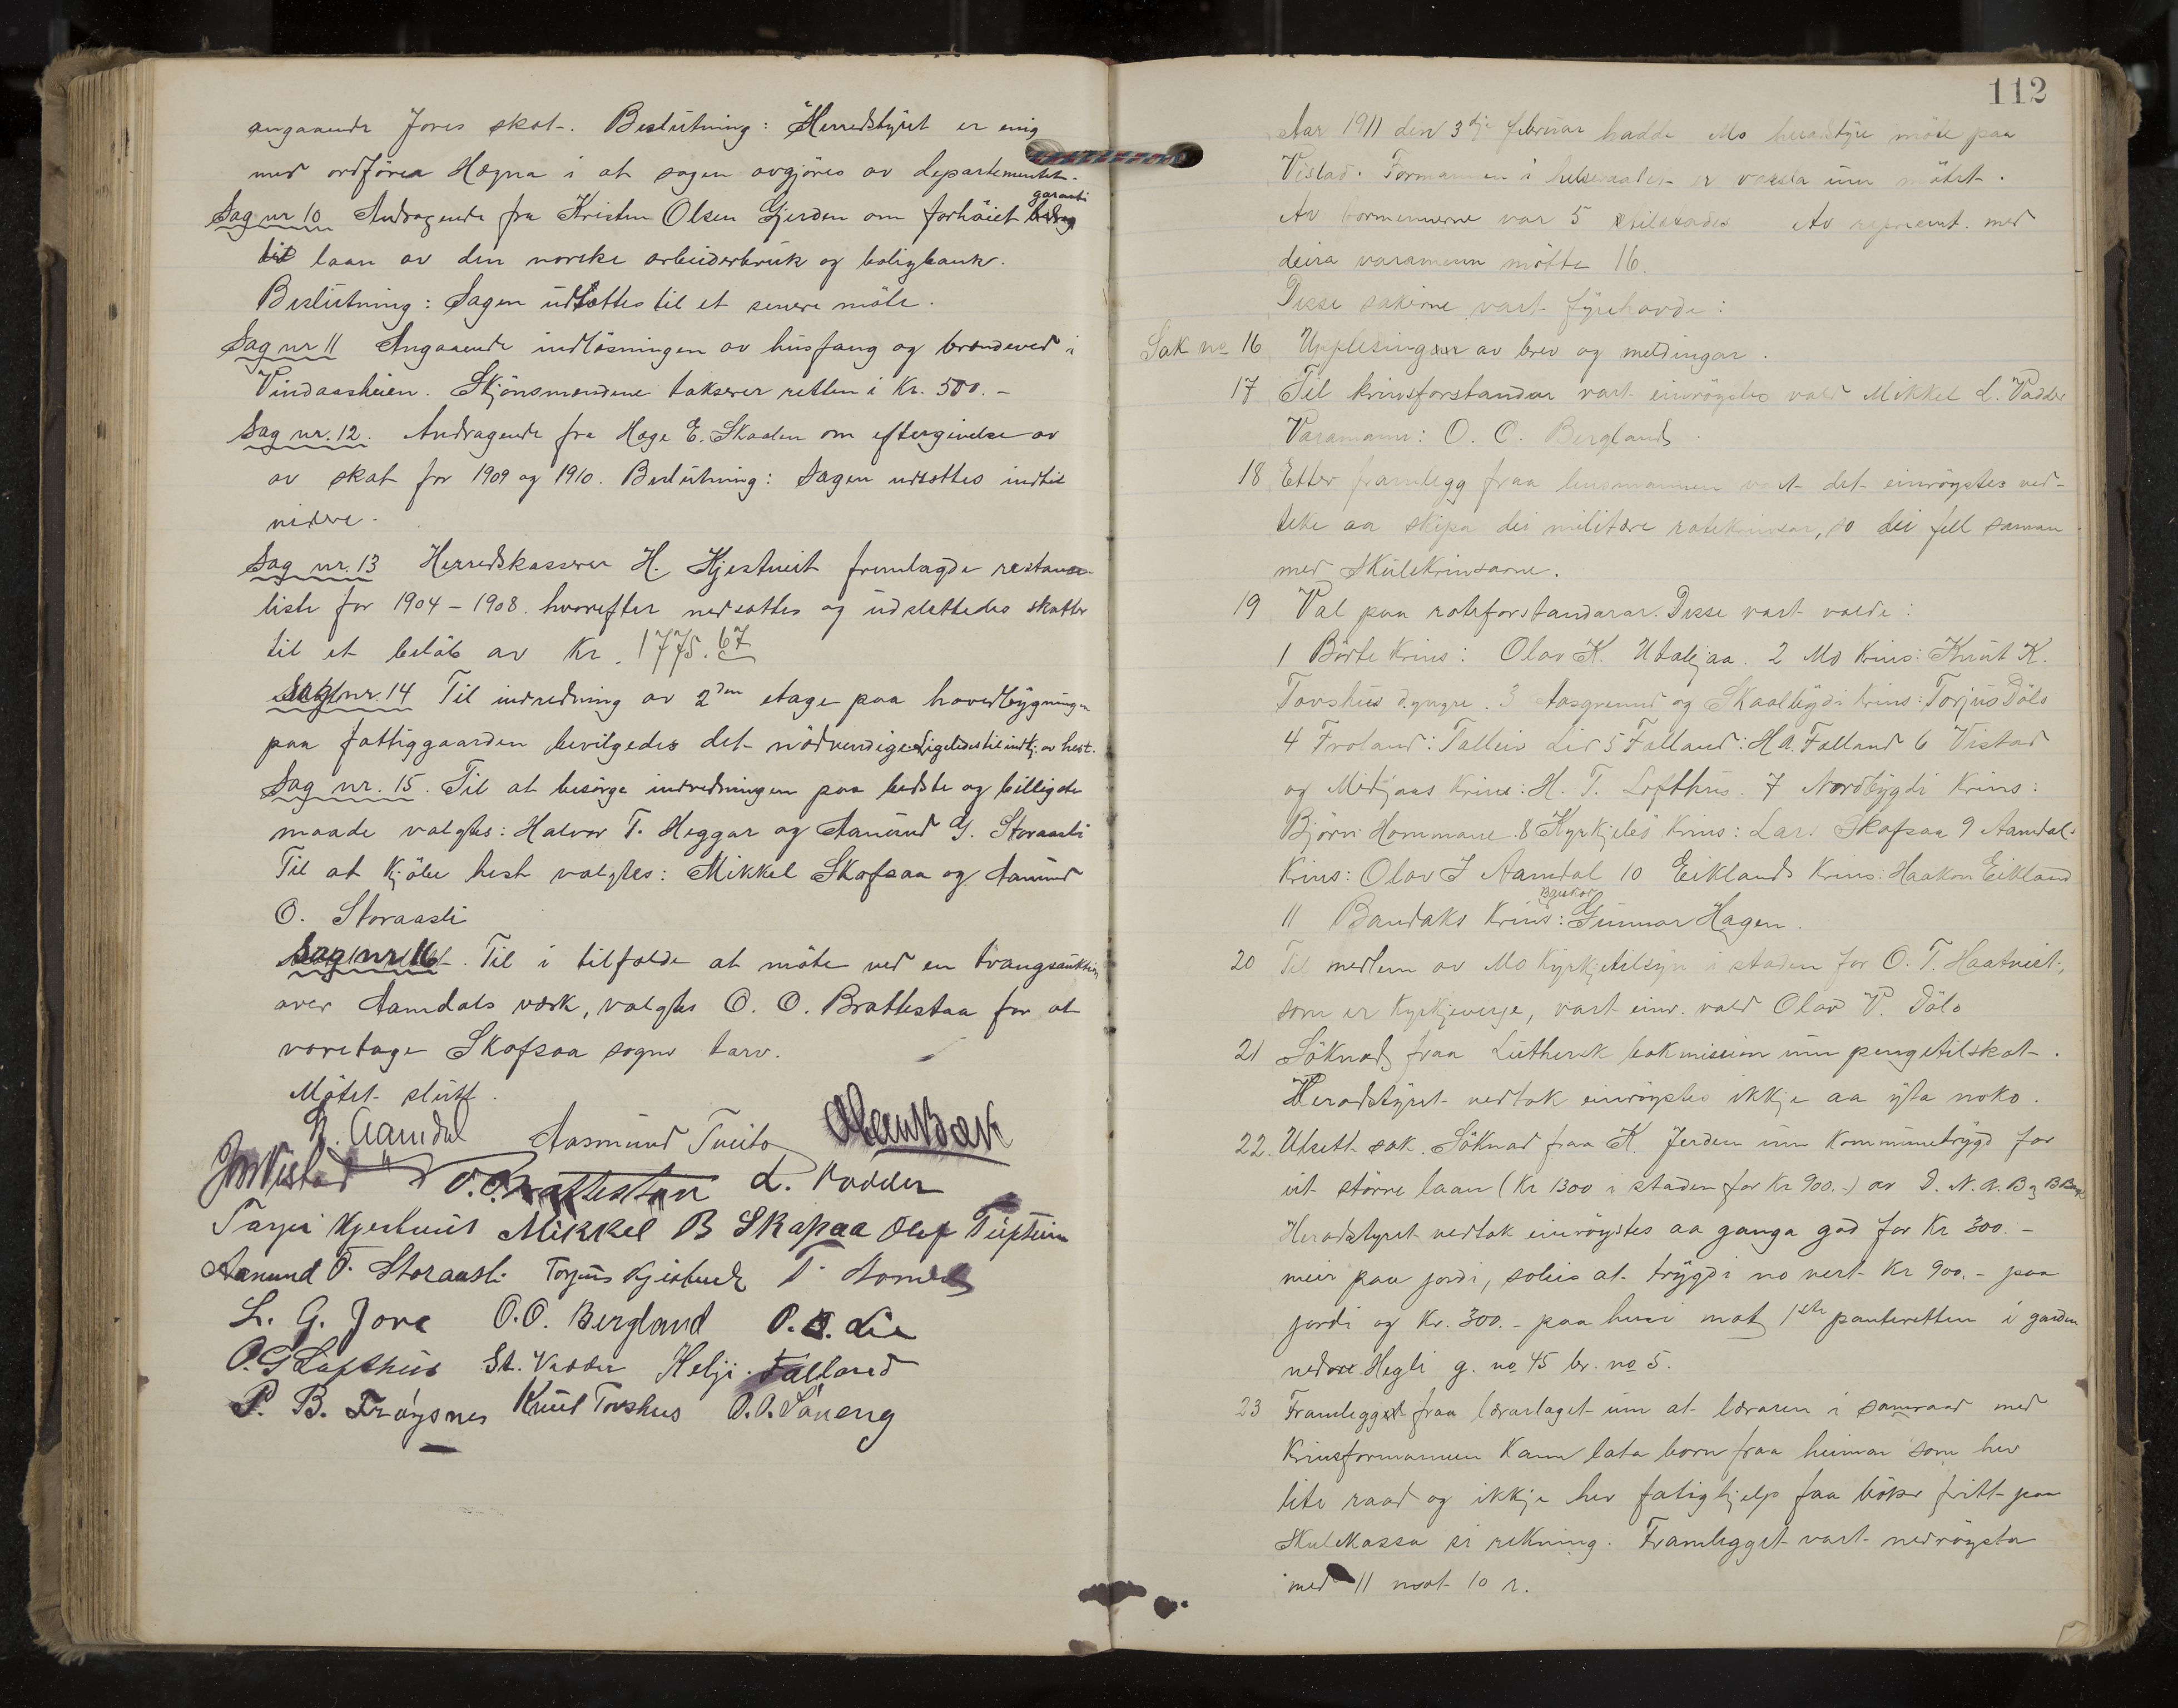 angaaende Jores skat. Beslutning: Herredstyret er enig
med ordförer Høgna i at sagen avgjöres av departementet.
garanti
Sag nr 10 Andragende fra Kristen Olsen Gjerden om forhöiet bidrag
til laan av den norske arbeiderbruk og boligbank.
Beslutning: Sagen udsættes til et senere möte.
Sag nr 11 Angaaende indlösningen av husfang og brændeved i
Vindaasheien. Skjönsmændene takserer retten i Kr. 500.-
Sag nr. 12. Andragende fra Hæge E. Skaalen om eftergivelse av
av skat for 1909 og 1910. Beslutning: Sagen udsættes indtil
videre.
Sag nr. 13 Herredskasserer H. Kjestveit fremlagde restance
liste for 1904-1908. hvorefter nedsattes og udslettedes skatter
til et belöb av Kr. 1775.67
Sag nr 14 Til indredning av 2den etage paa hovedbygningen
paa fattiggaarden bevilgedes det nödvendige. Ligeledes til indkj. av hest.
Sag nr. 15. Til at besörge indredningen paa bedste og billigste
maade valgtes: Halvor T. Heggar og Aanund G. Storaasli
Til at kjöbe hest valgtes: Mikkel Skafsaa og Aanund
O. Storaasli
Sag nr 16. Til i tilfælde at möte ved en tvangsauktion
over Aamdals værk, valgtes O. O. Brattestaa for at
varetage Skafsaa sogns tarv.
Mötet slutt.
Aamdal Aasmund Tveito
J Vistad O. O. Brattestaa L. Vadder
Tarjei Kjestveit Mikkel B Skafsaa Olef
Aanund O. Storaasli Torjus Kjestveit
L. G. Jore O. O. Bergland O. S. Lie
O. G Lofthus St. Vadder Helje Falland
P. B. Fröysnes Knut Tovshus O. O. Saneng
112
Aar 1911 den 3dje februar hadde Mo heradstyre möte paa
Vistad. Formannen i helseraadet er varsla um mötet.
Av formennerne var 5 tilstades Av represent. med
deira varamenn mötte 16.
Disse sakerne vart fyrehavde:
Sak no 16 Upplesing av brev og meldingar.
17 Til krinsforstandar vart einröystes vald Mikkel L. Vadder
Varamann: O. O. Bergland.
18 Etter framlegg fraa lensmannen vart det einröystes ved-
teke aa skipa dei militære rodekrinsar, so dei fell saman
med Skulekrinsarne.
19 Val paa roteforstandarar. Disse vart valde:
1 Börte Krins: Olav K. Utalijaa. 2 Mo Krins: Knut K.
Tovshus d. yngre. 3 Aasgrend og Skaalbygdi krins: Torjus Dölo
4 Froland: Talleiv Lid 5 Falland: H A. Falland 6 Vistad
og Midjaas Krins: H. T. Lofthus. 7 Nordbygdi Krins:
Björn Hommane. 8 Kyrkjebö Krins: Lar. Skafsaa 9 Aamdals
Krins: Olav J Aamdal 10 Eiklands Krins: Haakon Eikland
11 Bandaks Krins: Gunnar Hagen.
20 Til medlem av Mo Kyrkjetilsyn i staden for O. T. Haatveit,
som er Kyrkjeverje, vart einr. vald Olav V. Dölo
21 Söknad fraa Luthersk bokmission um pengetilskot.
Heradstyret vedtok einröystes ikkje aa yta noko.
22. Utsett sak. Söknad fraa K. Jerden um Kommunetrygd for
eit större laan (Kr 1300 i staden for Kr 900.-) av D. N. A. B og B Bank
Heradstyret vedtok einröystes aa ganga god for Kr 300.-
meir paa jordi, soleis at trygdi no vert Kr 900.- paa
jordi og Kr. 300.- paa husi mot 1ste panteretten i garden
nedre Hegli g. no 45 br. no 5.
23 Framlegget fraa lærarlaget um at læraren i samraad med
Krinsformannen Kann lata born fraa heimar som hev
lite raad og ikkje hev fatighjelp faa böker fritt paa
Skulekassa si rekning. Framlegget vart nedröysta
med 11 mot 10 r.